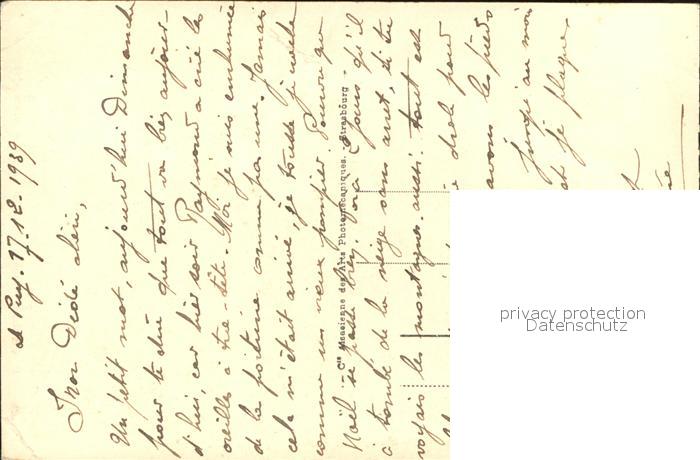 Le Puy. 17-12-1939
Mon Dédé chéri,
Un petit mot, aujourd'hui Dimanche
pour te dire que tout va bien aujour-
d'hui, car hier soir Raymond a crié les
oreilles à tue-tête. Moi je suis enrhumée
de la poitrine comme pas une. Jamais
cela m'était arrivé, je tousse je crache
comme un vieux pompier. Pourvu que
Noël se passe bien. jours qu'il
a tombé de la neige sans arrêt, si tu
voyais les montagnes aussi. tout est
drôle pour
avons les pieds
jusqu'au moi
je plaque.
Cie Alsacienne des Arts Photomécaniques. - Strasbourg
privacy protection
Datenschutz